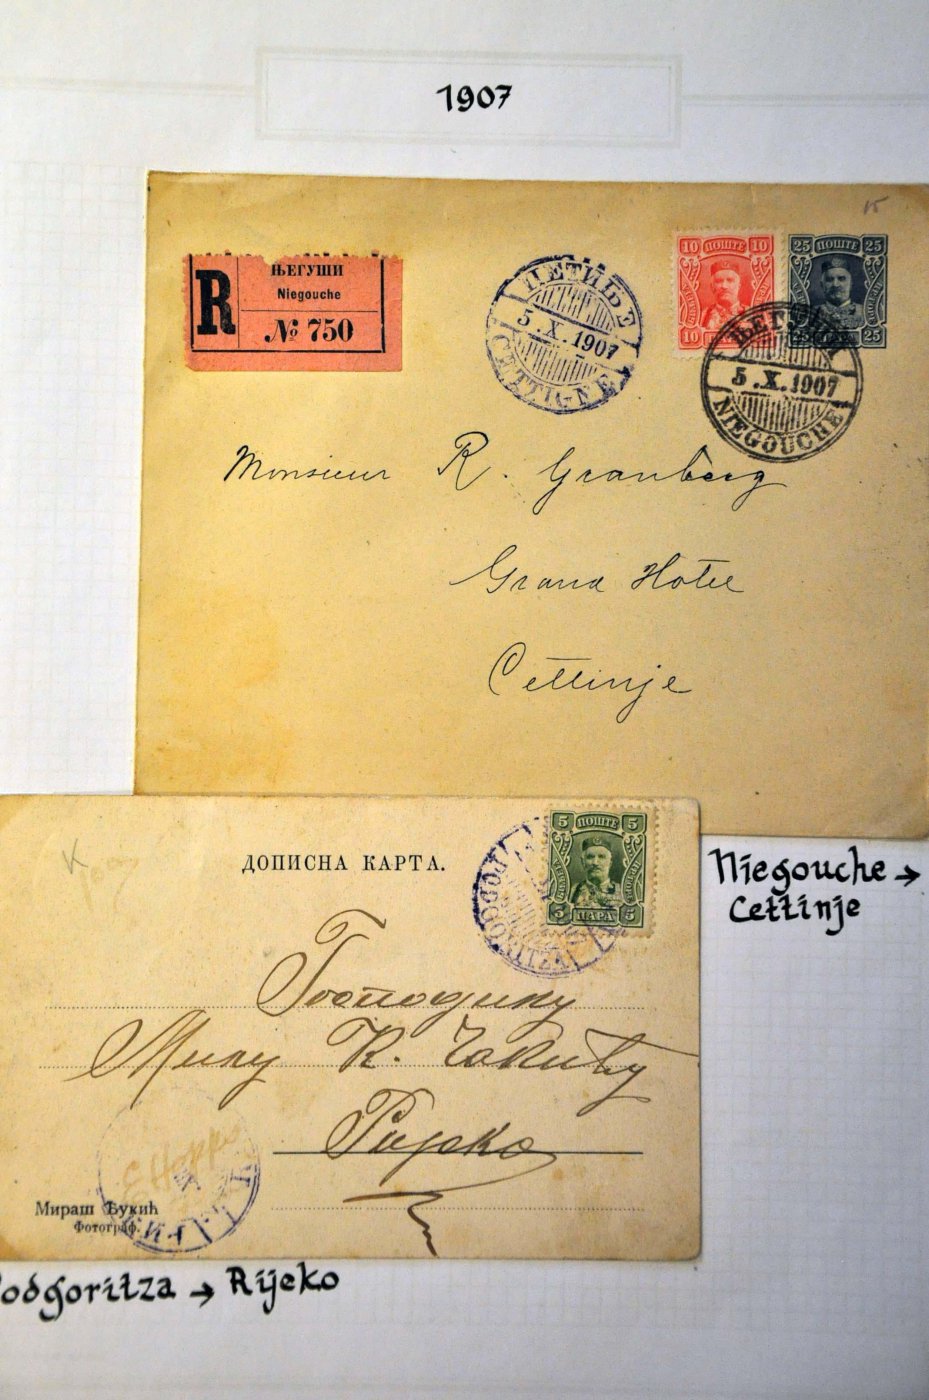 1907
15
R
ЊЕГУШИ
Niegouche
№ 750
ЦЕТИЊЕ
5.X.1907
CETTIGNE
10 ПОШТЕ 10
10 10
25 ПОШТЕ 25
25 25
ЊЕГУШИ
5.X.1907
NIEGOUCHE
Monsieur R. Granberg
Grand Hotel
Cettinje
Niegouche →
Cettinje
K
107
ДОПИСНА КАРТА.
5 ПОШТЕ 5
5 ПАРА 5
PODGORITZA
Господину
Милу К. Чакићу
Ријеко
Мираш Ђукић
Фотограф.
odgoritza → Rijeko